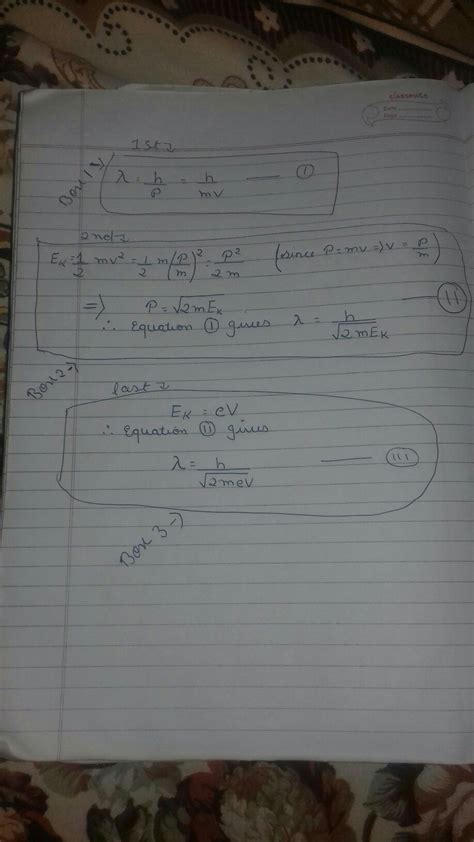 classmate
Date
Page
1st :
Box 1 →
λ = h/P = h/mv — (I)
2nd :
E_K = 1/2 mv² = 1/2 m(P/m)² = P²/2m (since P = mv => v = P/m)
=> P = √2mE_K
∴ Equation (I) gives λ = h/√2mE_K — (II)
Box 2 →
last :
E_K = eV
∴ Equation (II) gives
λ = h/√2meV — (III)
Box 3 →